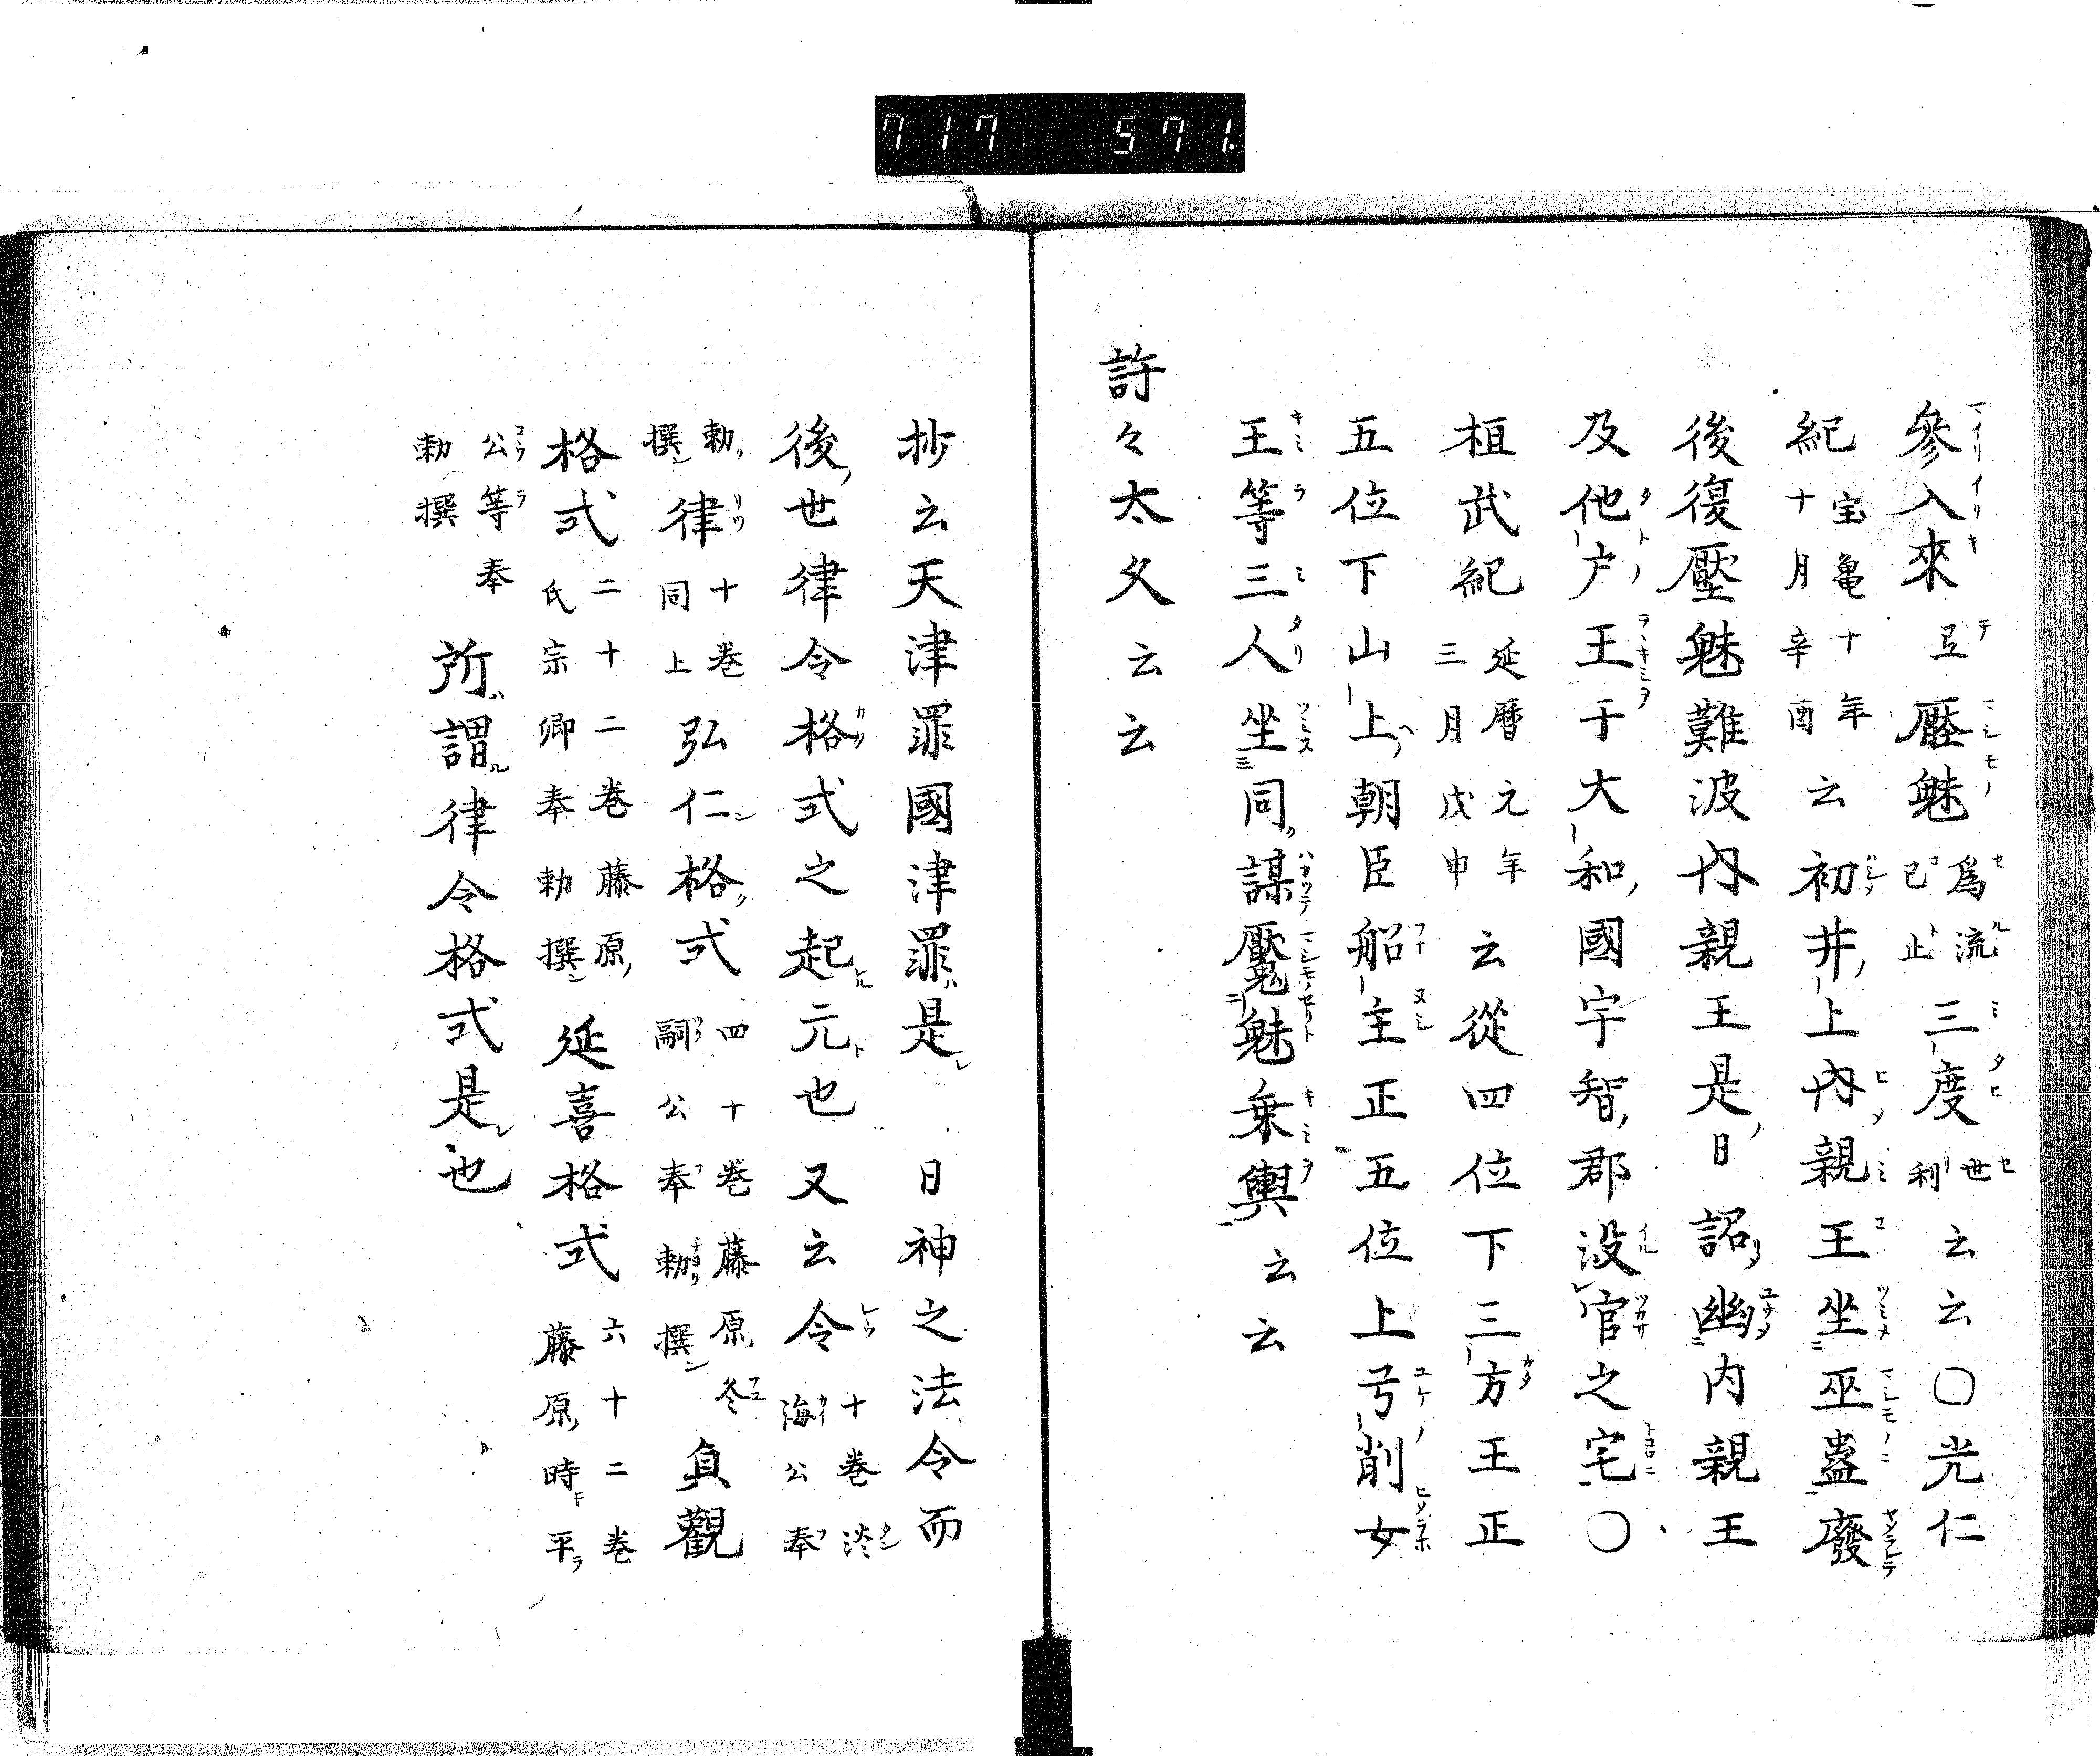 717 571.
參入來弖厭魅爲流己止三度世利云云〇光仁
紀宝亀十年十月辛酉云初井上內親王坐巫蠱廢
後復壓魅難波內親王是日詔幽內親王
及他戸王于大和國宇智郡没官之宅〇
桓武紀延曆元年三月戊申云從四位下三方王正
五位下山上朝臣船主正五位上弓削女
王等三人坐同謀魘魅乗輿云云
許々太久云云
抄云天津罪國津罪是日神之法令而
後世律令格式之起元也又云令十巻淡海公奉
勅撰律十巻同上弘仁格式四十巻藤原冬嗣公奉勅撰貞觀
格式二十二巻藤原氏宗卿奉勅撰延喜格式六十二巻藤原時平
公等奉勅撰所謂律令格式是也